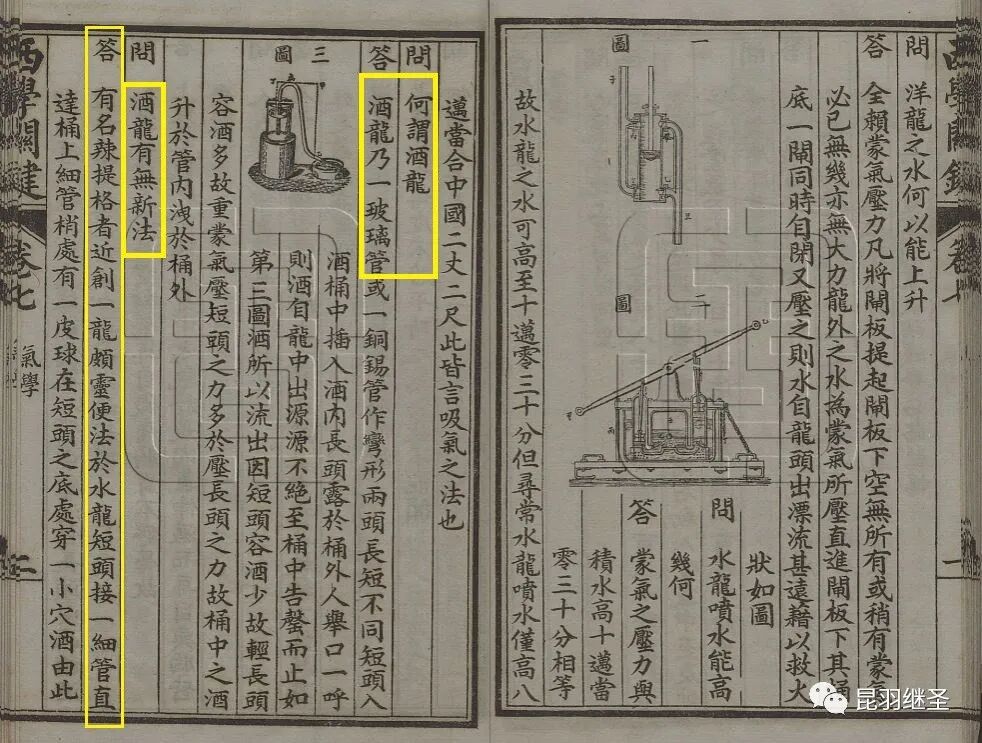 問 洋龍之水何以能上升
答 全賴蒙氣壓力凡將閘板提起閘板下空無所有或稍有蒙氣
必已無幾亦無大力龍外之水為蒙氣所壓直進閘板下其桶
底一閘同時自閉又壓之則水自龍頭出漂流甚遠藉以救火
狀如圖
一 圖
二 圖
問 水龍噴水能高
幾何
答 蒙氣之壓力與
積水高十邁當
零三十分相等
故水龍之水可高至十邁零三十分但尋常水龍噴水僅高八
邁當合中國二丈二尺此皆言吸氣之法也
問 何謂酒龍
答 酒龍乃一玻璃管或一銅錫管作彎形兩頭長短不同短頭入
酒桶中插入酒內長頭露於桶外人舉口一呼
則酒自龍中出源源不絕至桶中告罄而止如
第三圖酒所以流出因短頭容酒少故輕長頭
三 圖
容酒多故重蒙氣壓短頭之力多於壓長頭之力故桶中之酒
升於管內洩於桶外
問 酒龍有無新法
答 有名辣提格者近創一龍頗靈便法於水龍短頭接一細管直
達桶上細管梢處有一皮球在短頭之底處穿一小穴酒由此
西學關鍵 卷七 氣學 二
昆羽继圣